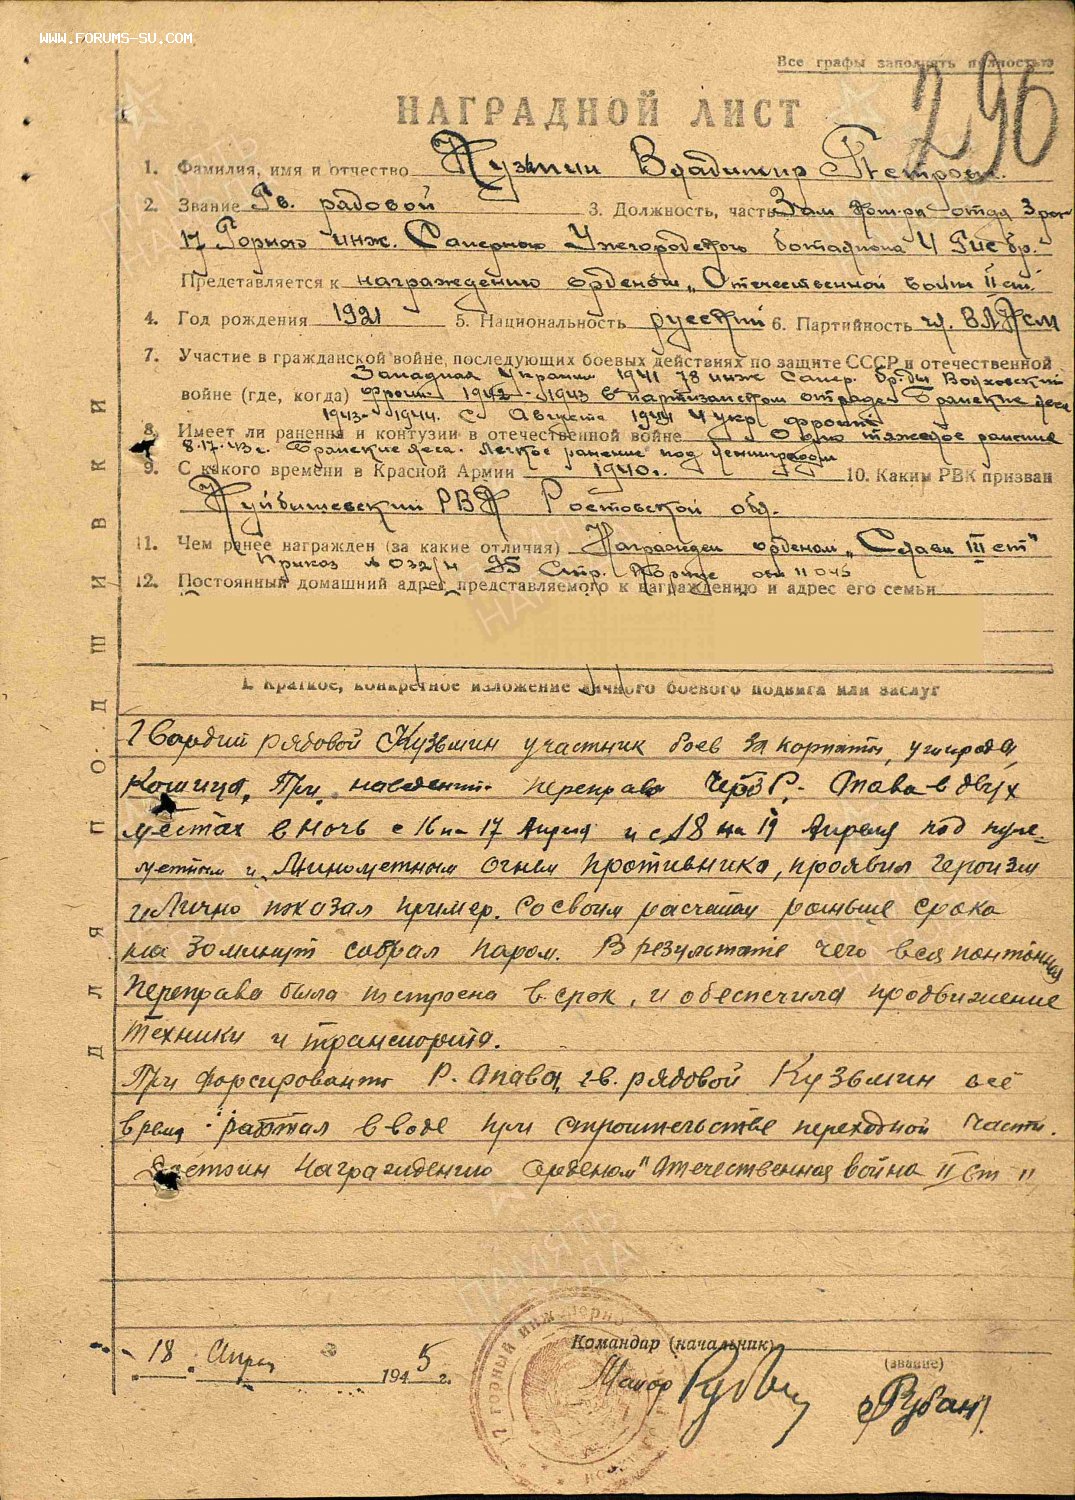 WWW.FORUMS-SU.COM
Все графы заполнять полностью
296
НАГРАДНОЙ ЛИСТ
1. Фамилия, имя и отчество Кузьмин Владимир Петрович
2. Звание Гв. рядовой 3. Должность, часть Зам ком-ра отд. 3 роты
17 Горного инж. Саперного Ужгородского батальона 4 Гисбр.
Представляется к награждению орденом „Отечественной войны II ст."
4. Год рождения 1921 5. Национальность русский 6. Партийность чл. ВЛКСМ
7. Участие в гражданской войне, последующих боевых действиях по защите СССР и отечественной
Западная Украина 1941 78 инж Сапер. бр-ды Волховский
войне (где, когда) фронт 1942 - 1943 в партизанском отряде Брянские леса
1943-1944. С Августа 1944 4 укр. фронт
8. Имеет ли ранения и контузии в отечественной войне Одно тяжелое ранение
8.17.43 г. Брянские леса. Легкое ранение под Ленинградом
9. С какого времени в Красной Армии 1940 г. 10. Каким РВК призван
Куйбышевский РВК Ростовской обл.
11. Чем ранее награжден (за какие отличия) Награжден орденом „Слави III ст"
Приказ № 032/н 95 Стр. Корпус
12. Постоянный домашний адрес представляемого к награждению и адрес его семьи
I. Краткое, конкретное изложение личного боевого подвига или заслуг
Гвардии рядовой Кузьмин участник боев за Карпаты, ужгорода,
Кошица. При наведении переправа через Р. Опава в двух
местах в ночь с 16 на 17 Апреля и с 18 на 19 Апреля под пуле-
метным и Минометным огнем противника, проявил героизм
и Лично показал пример. Со своим расчетом раньше срока
на 30 минут собрал паром. В результате чего вся понтонная
переправа была построена в срок, и обеспечила продвижение
техники и транспорта.
При форсировании Р. Опава, гв. рядовой Кузьмин всё
время работал в воде при строительстве переходной части.
Достоин награждению орденом "Отечественная война II ст"
18 Апрел 1945 г.
Командир (начальник)
Майор
(звание)
Рубан
17 горный инженерно
ДЛЯ ПОДШИВКИ
ПАМЯТЬ НАРОДА